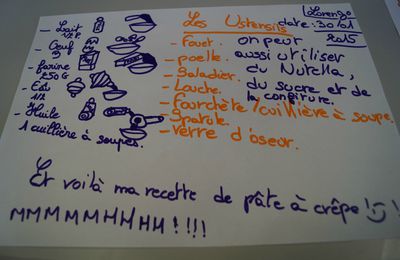 Lorenzo
date: 30/01
2015
- Lait
1/2 L.
- Oeuf
3
- farine
250 G
- Eau
1/2
- Huile
1 cuillière à soupes.
Les Ustensils
- Fouet.
- poelle.
- Saladier.
- Louche.
- Fourchête / cuillière à soupe.
- Spatule.
- verre d'oseur.
on peut
aussi utiliser
du Nutella,
du sucre et de
la confiture.
Et voilà ma recette de pâte à crêpe !
MMMMMHHHH ! !!!